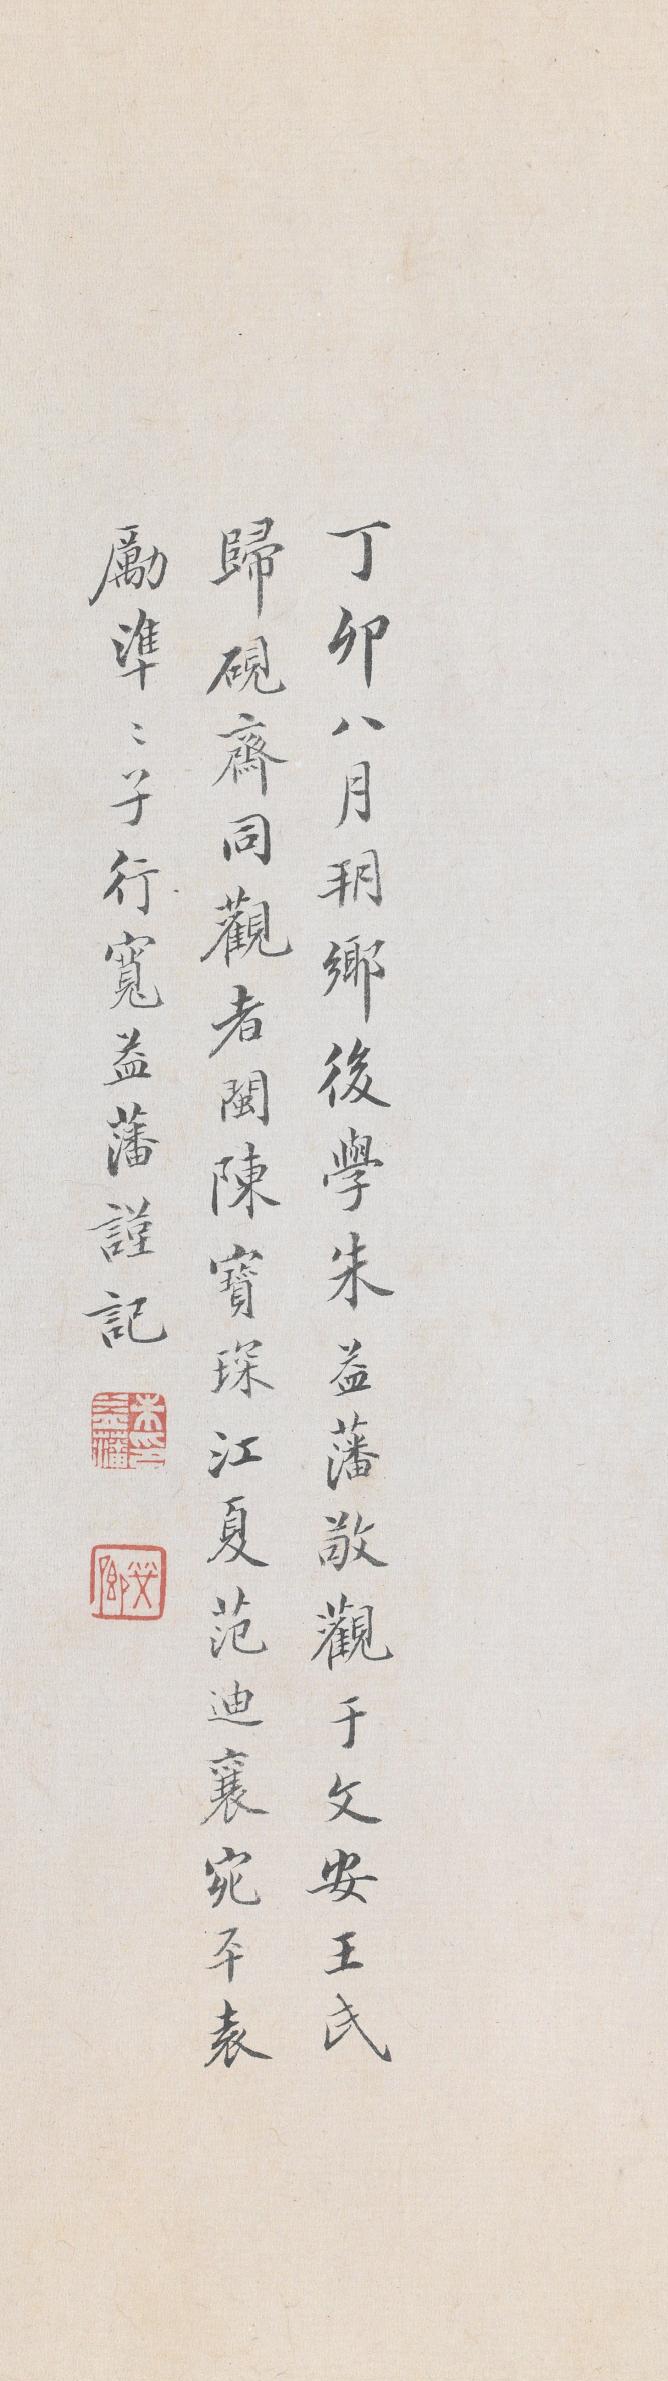 丁卯八月玥鄉後學朱益藩敬觀于文安王氏
歸硯齋同觀者閩陳寶琛江夏范迪襄宛平袁
勵準〻子行寬益藩謹記
朱益藩印